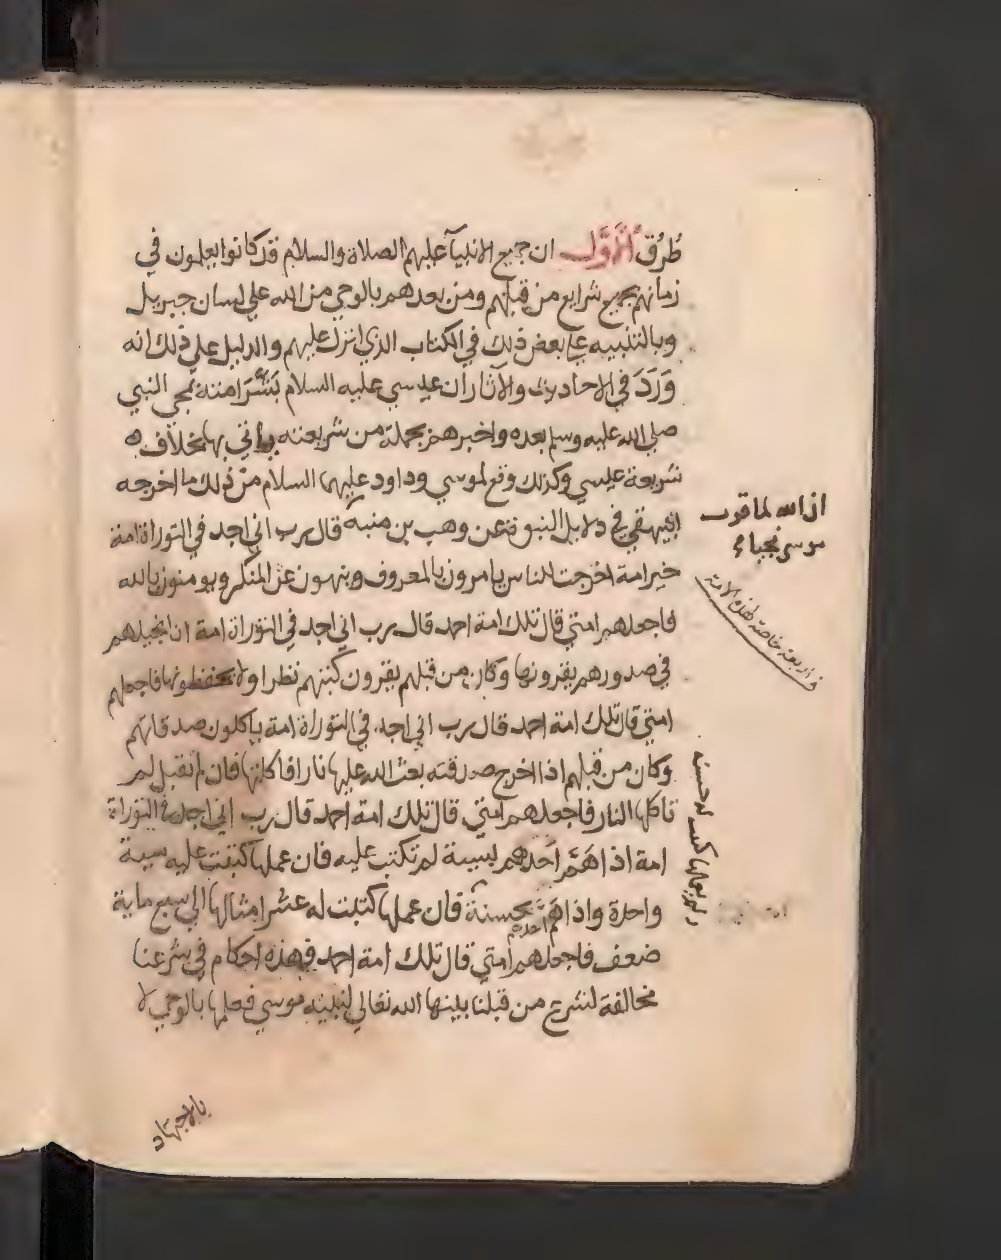 طُرُق الأوَّل ان جميع الانبيآ عليهم الصلاة والسلام قد كانوا يعلمون في
زمانهم بجميع شرايع من قبلهم ومن بعدهم بالوحي من الله علي لسان جبريل
وبالتنبيه علي بعض ذلك في الكتاب الذي انزل عليهم والدليل علي ذلك انه
وَرَدَ في الاحاديث والآثار ان عيسي عليه السلام بَشَّرَ امته بمجي النبي
صلي الله عليه وسلم بعده واخبرهم بجملة من شريعته ياتي بها بخلاف
شريعة عيسي وكذلك وقع لموسي وداود عليهما السلام من ذلك ما اخرجه
البيهقي في دلايل النبوة عن وهب بن منبه قال يرب اني اجد في التوراة امة
خير امة اخرجت للناس يامرون بالمعروف وينهون عن المنكر ويومنون بالله
فاجعلهم امتي قال تلك امة احمد قال يرب اني اجد في التوراة امة اناجيلهم
في صدورهم يقرونها وكان من قبلهم يقرون كتبهم نظرا ولا يحفظونها فاجعلهم
امتي قال تلك امة احمد قال يرب اني اجد في التوراة امة ياكلون صدقاتهم
وكان من قبلهم اذا اخرج صدقته بعث الله عليها نارا فاكلتها فان لم تقبل لم
تاكلها النار فاجعلهم امتي قال تلك امة احمد قال رب اني اجد في التوراة
امة اذا هَمَّ احدهم بسيئة لم تكتب عليه فان عملها كتبت عليه سيئة
واحدة واذا هَمَّ احدهم بحسنة فان عملها كتبت له عشر امثالها الي سبع ماية
ضعف فاجعلهم امتي قال تلك امة احمد فهذه احكام في شرعنا
مخالفة لشرع من قبلنا بينها الله تعالي لنبيه موسي فعلمها بالوحي لا
بالاجتهاد
ان الله لما قرب
موسي نجيا
خاصة لهذه الامة
ولم يعملها كتبت له حسنة